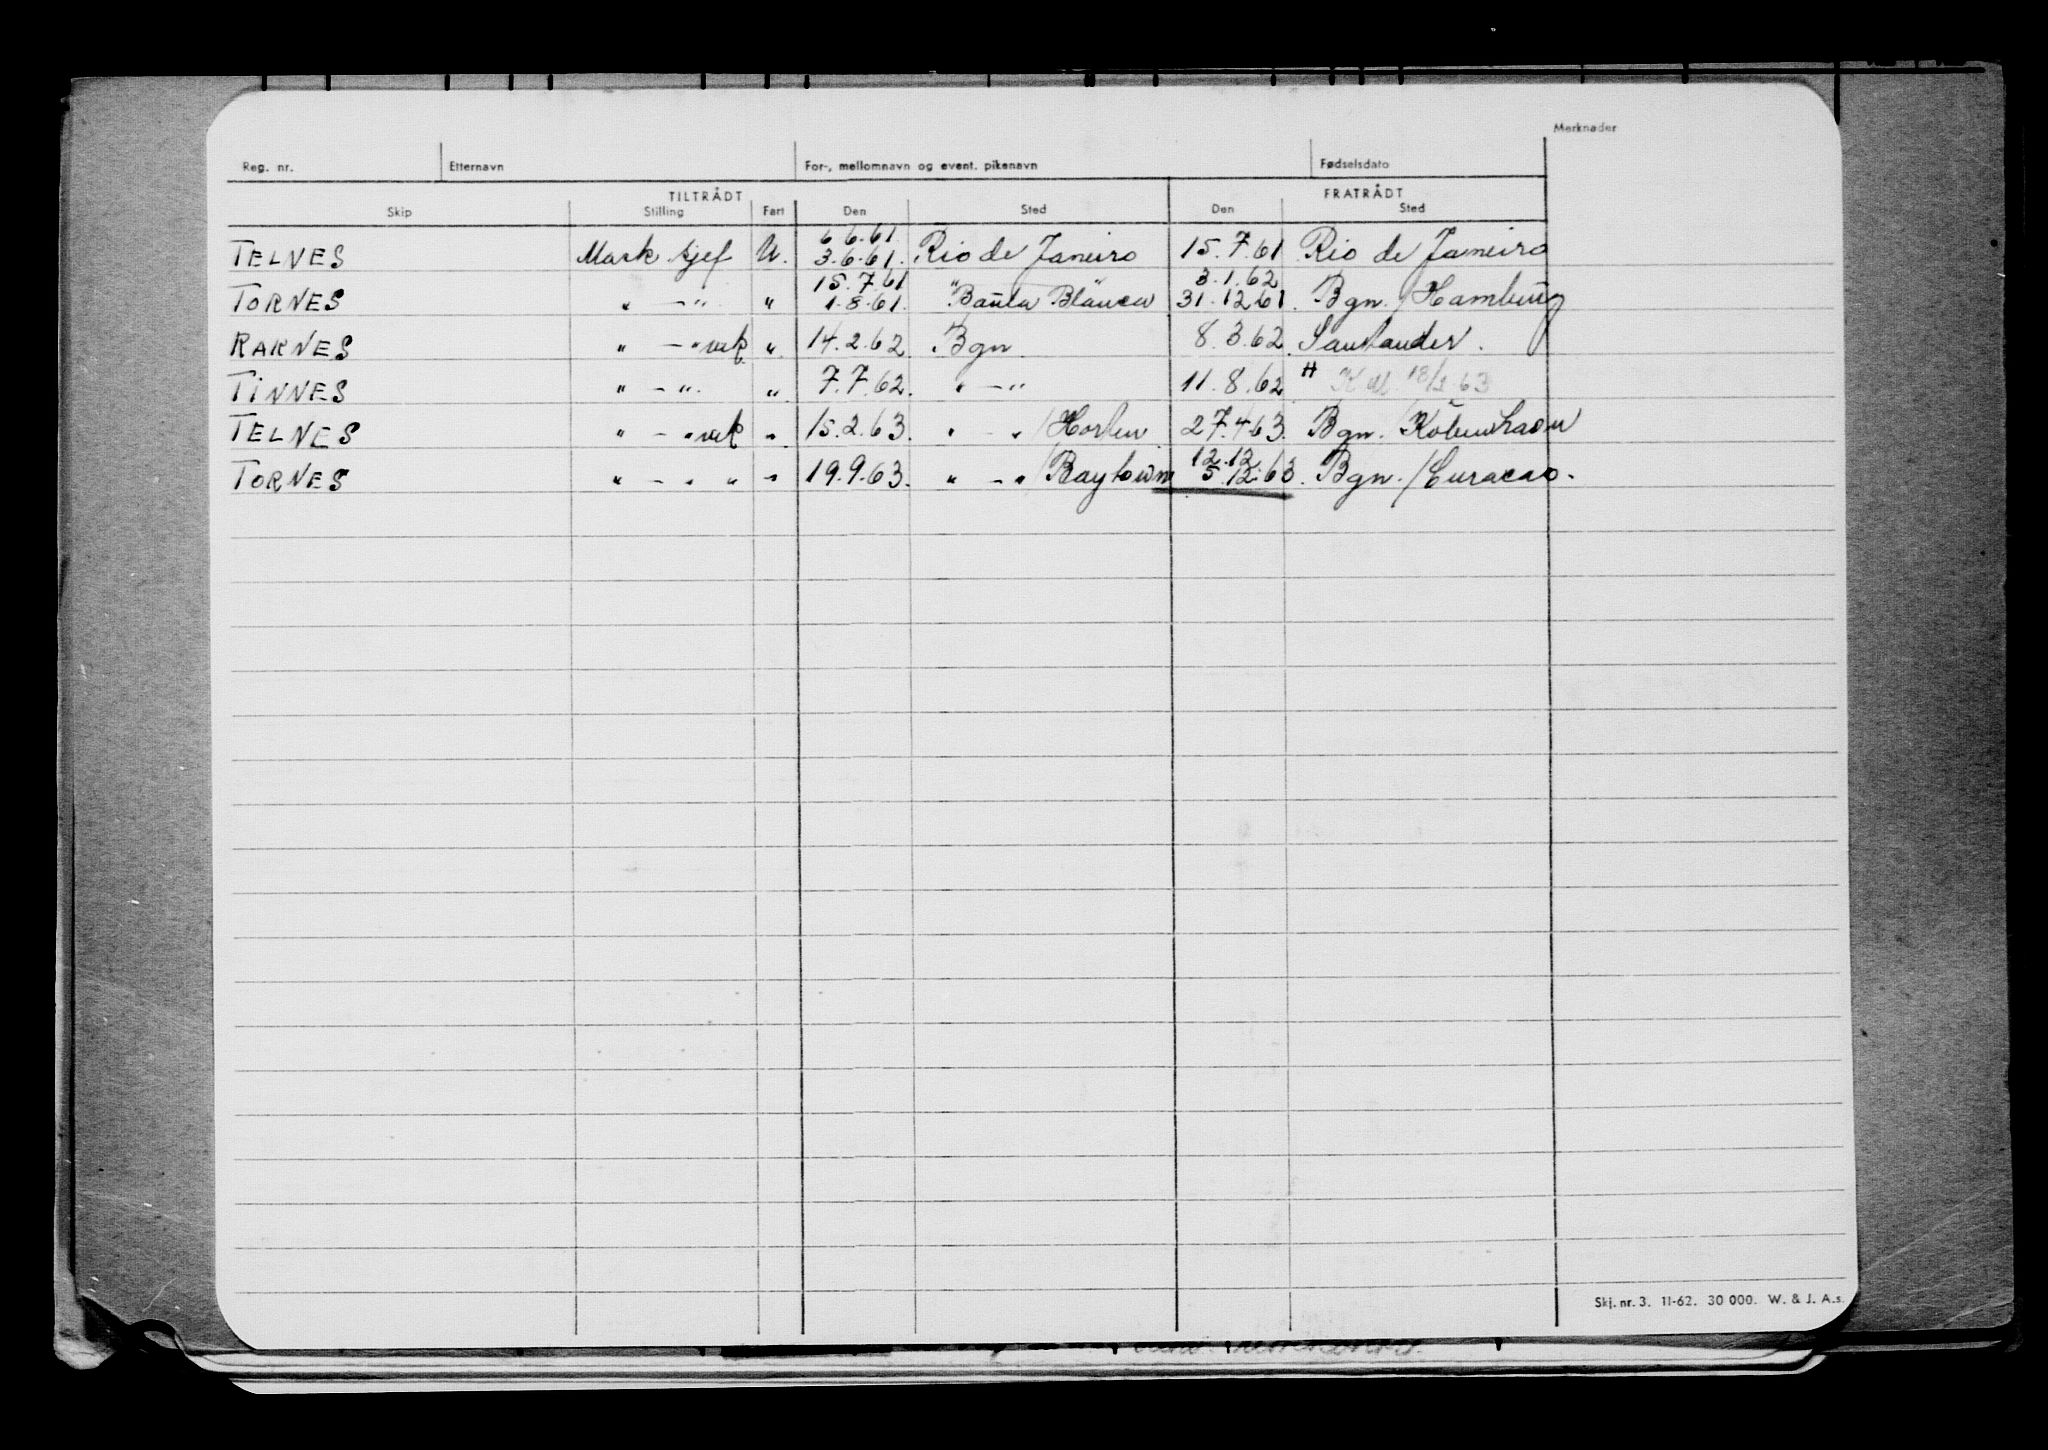 Merknader
Reg. nr. Etternavn For-, mellomnavn og event. pikenavn Fødselsdato
TILTRÅDT FRATRÅDT
Skip Stilling Fart Den Sted Den Sted
6.6.61
TELNES Mask sjef U. 3.6.61. Rio de Janeiro 15.7.61 Rio de Janeiro
15.7.61 " 3.1.62
TORNES " - " " 1.8.61. Bahia Blanca 31.12.61. Bgn. / Hamburg
RAKNES " - " vik " 14.2.62. Bgn 8.3.62. Santander.
TINNES " - ". " 7.7.62 " - " 11.8.62 " 18/1-63
TELNES " - " vik " 15.2.63. " - " / Horten 27.4.63. Bgn. / Köbenhavn
12.12
TORNES " - " " " 19.9.63. " - " / Baytown 5.12.63. Bgn. / Curacao.
Skj. nr. 3. 11-62. 30 000. W. & J. A.s.